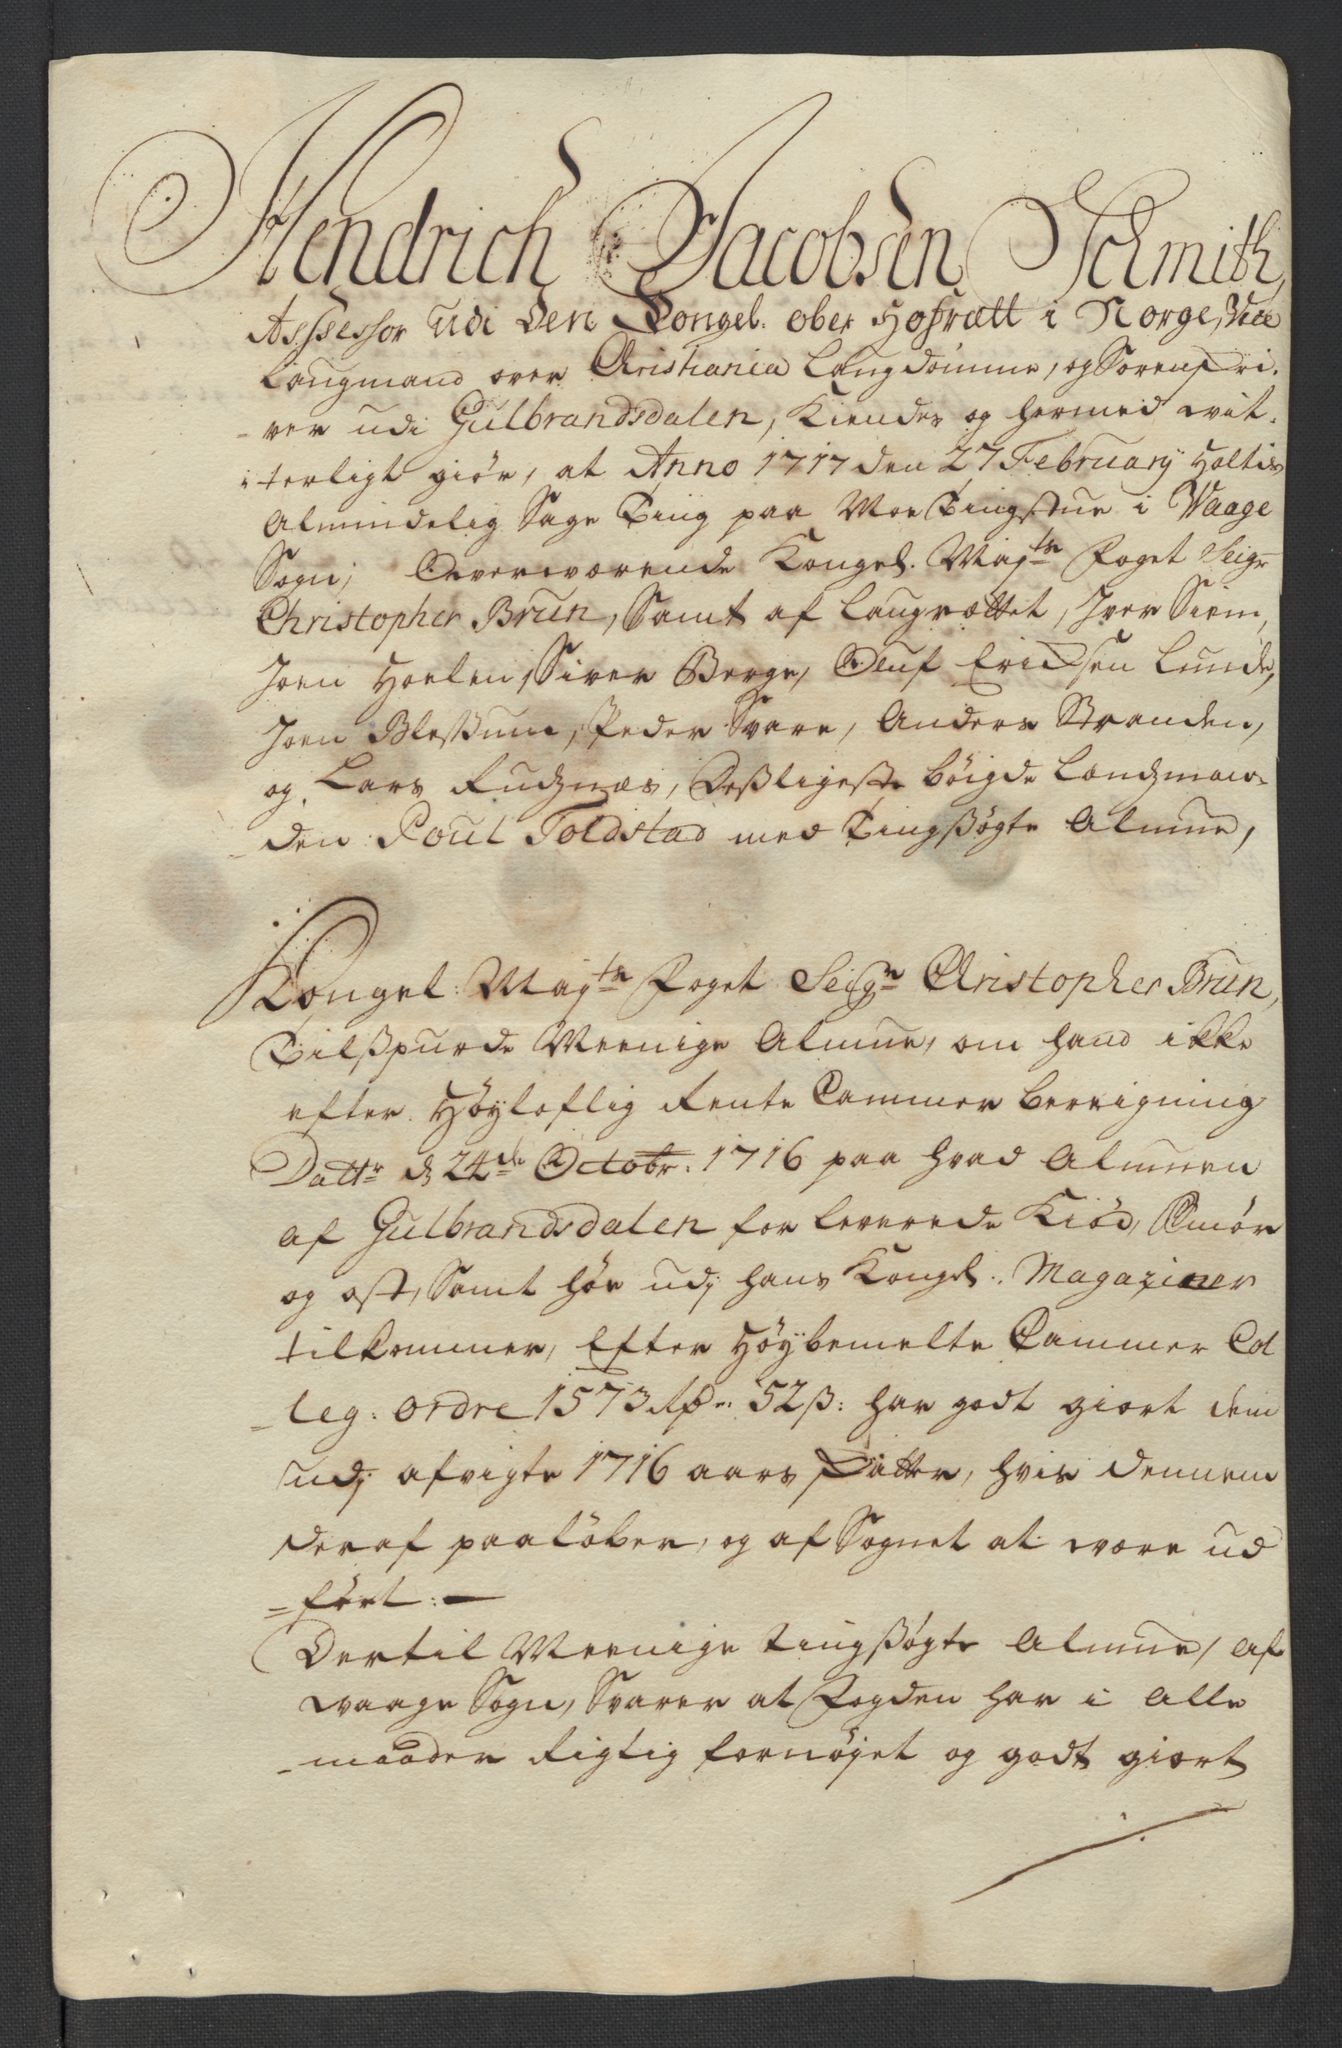 Hendrich Jacobsen Schmith,
Assessor udi den Kongel: ober Hofrætt i Norge, Vice
Laugmand over Christiania Laugdømme, og Sorenskri-
-ver udi Gulbrandsdalen, Kiendes og hermed wit-
terligt giør, at Anno 1717 den 27 February Holtis
Almindelig Sage Ting paa Moe Tingstue i Vaage
Sogn, Overeværende Kongel. Maj:ts Foget Seigr
Christopher Brun, Samt af Laugrættet, Iver Siem,
Joen Hoelen, Siver Berge, Oluf Erichsen Lunde,
Joen Blessum, Peder Svare, Anders Stranden,
og Lars Rudznes, Desligeste bøigde Landzman-
-den Poul Toldstad med Tingssøgte Almue,
Kongel: Maj:ts Foget Seig:r Christopher Brun,
Tilsspurde Meenige Almue, om hand ikke
efter Høyloflig Rente Cammer berrigning
Datt:r d 24:de Octobr: 1716 paa hvad Almuen
af Gulbrandsdalen for leverede Kiød, Smør
og ost, Samt hør udj hans Kongel: Magaziner
tilkommer, Efter Høybemelte Cammer Col
-leg: ordre 1573 Rdr 52 ß: har godt giort dem
udj afvigte 1716 aars skatter, hvis dennem
deraf paaløber, og af Sognet at være ud
-ført: —
Dertil Meenige tingssøgte Almue, af
waage Sogn, Svarer at Fogden har i Alle
-maader Rigtig fornøjet og godt giort